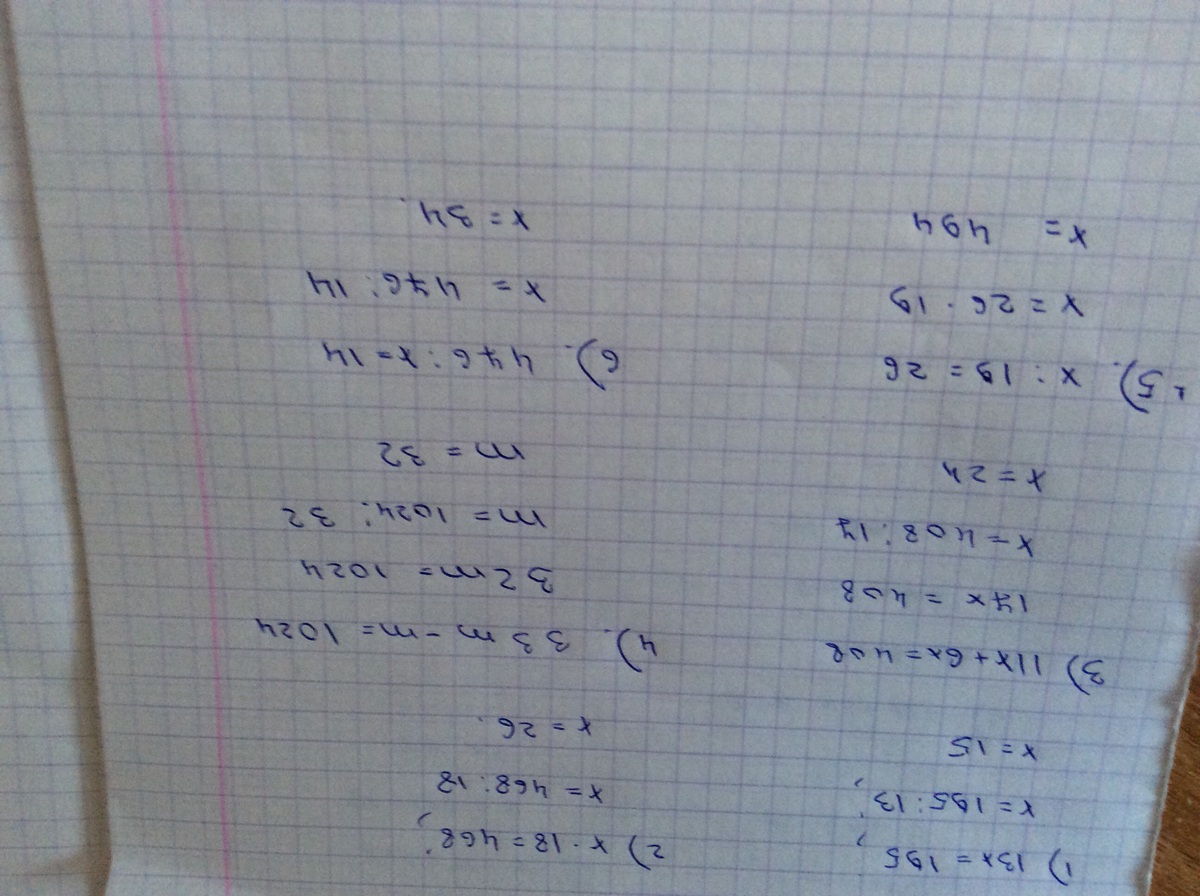 1) 13x = 195;
x = 195 : 13;
x = 15
2) x · 18 = 468;
x = 468 : 18
x = 26.
3) 11x + 6x = 408
17x = 408
x = 408 : 17
x = 24
4). 33m - m = 1024
32m = 1024
m = 1024 : 32
m = 32
5). x : 19 = 26
x = 26 · 19
x = 494
6). 476 : x = 14
x = 476 : 14
x = 34.